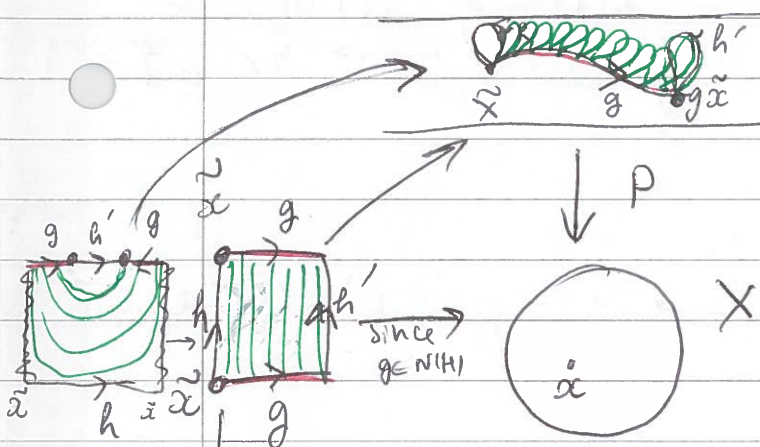 h′
x̃
g
g x̃
p
x̃
g
h′
g
g
h
h′
since
g∈N(H)
X
ẋ
x̃
h
x̃
x̃
g